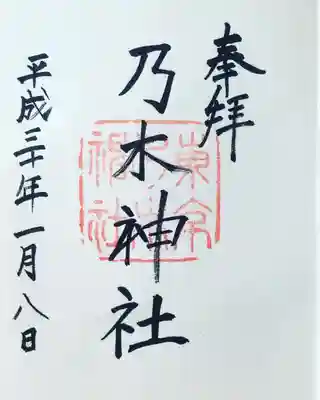 奉拝
乃木神社
平成三十年一月八日